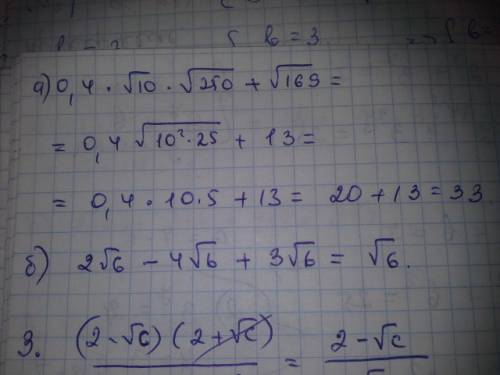 b = 3
а) 0,4 · √10 · √250 + √169 =
= 0,4 √10² · 25 + 13 =
= 0,4 · 10 · 5 + 13 = 20 + 13 = 33
б) 2√6 − 4√6 + 3√6 = √6.
3. (2 - √c) (2 + √c) = 2 - √c